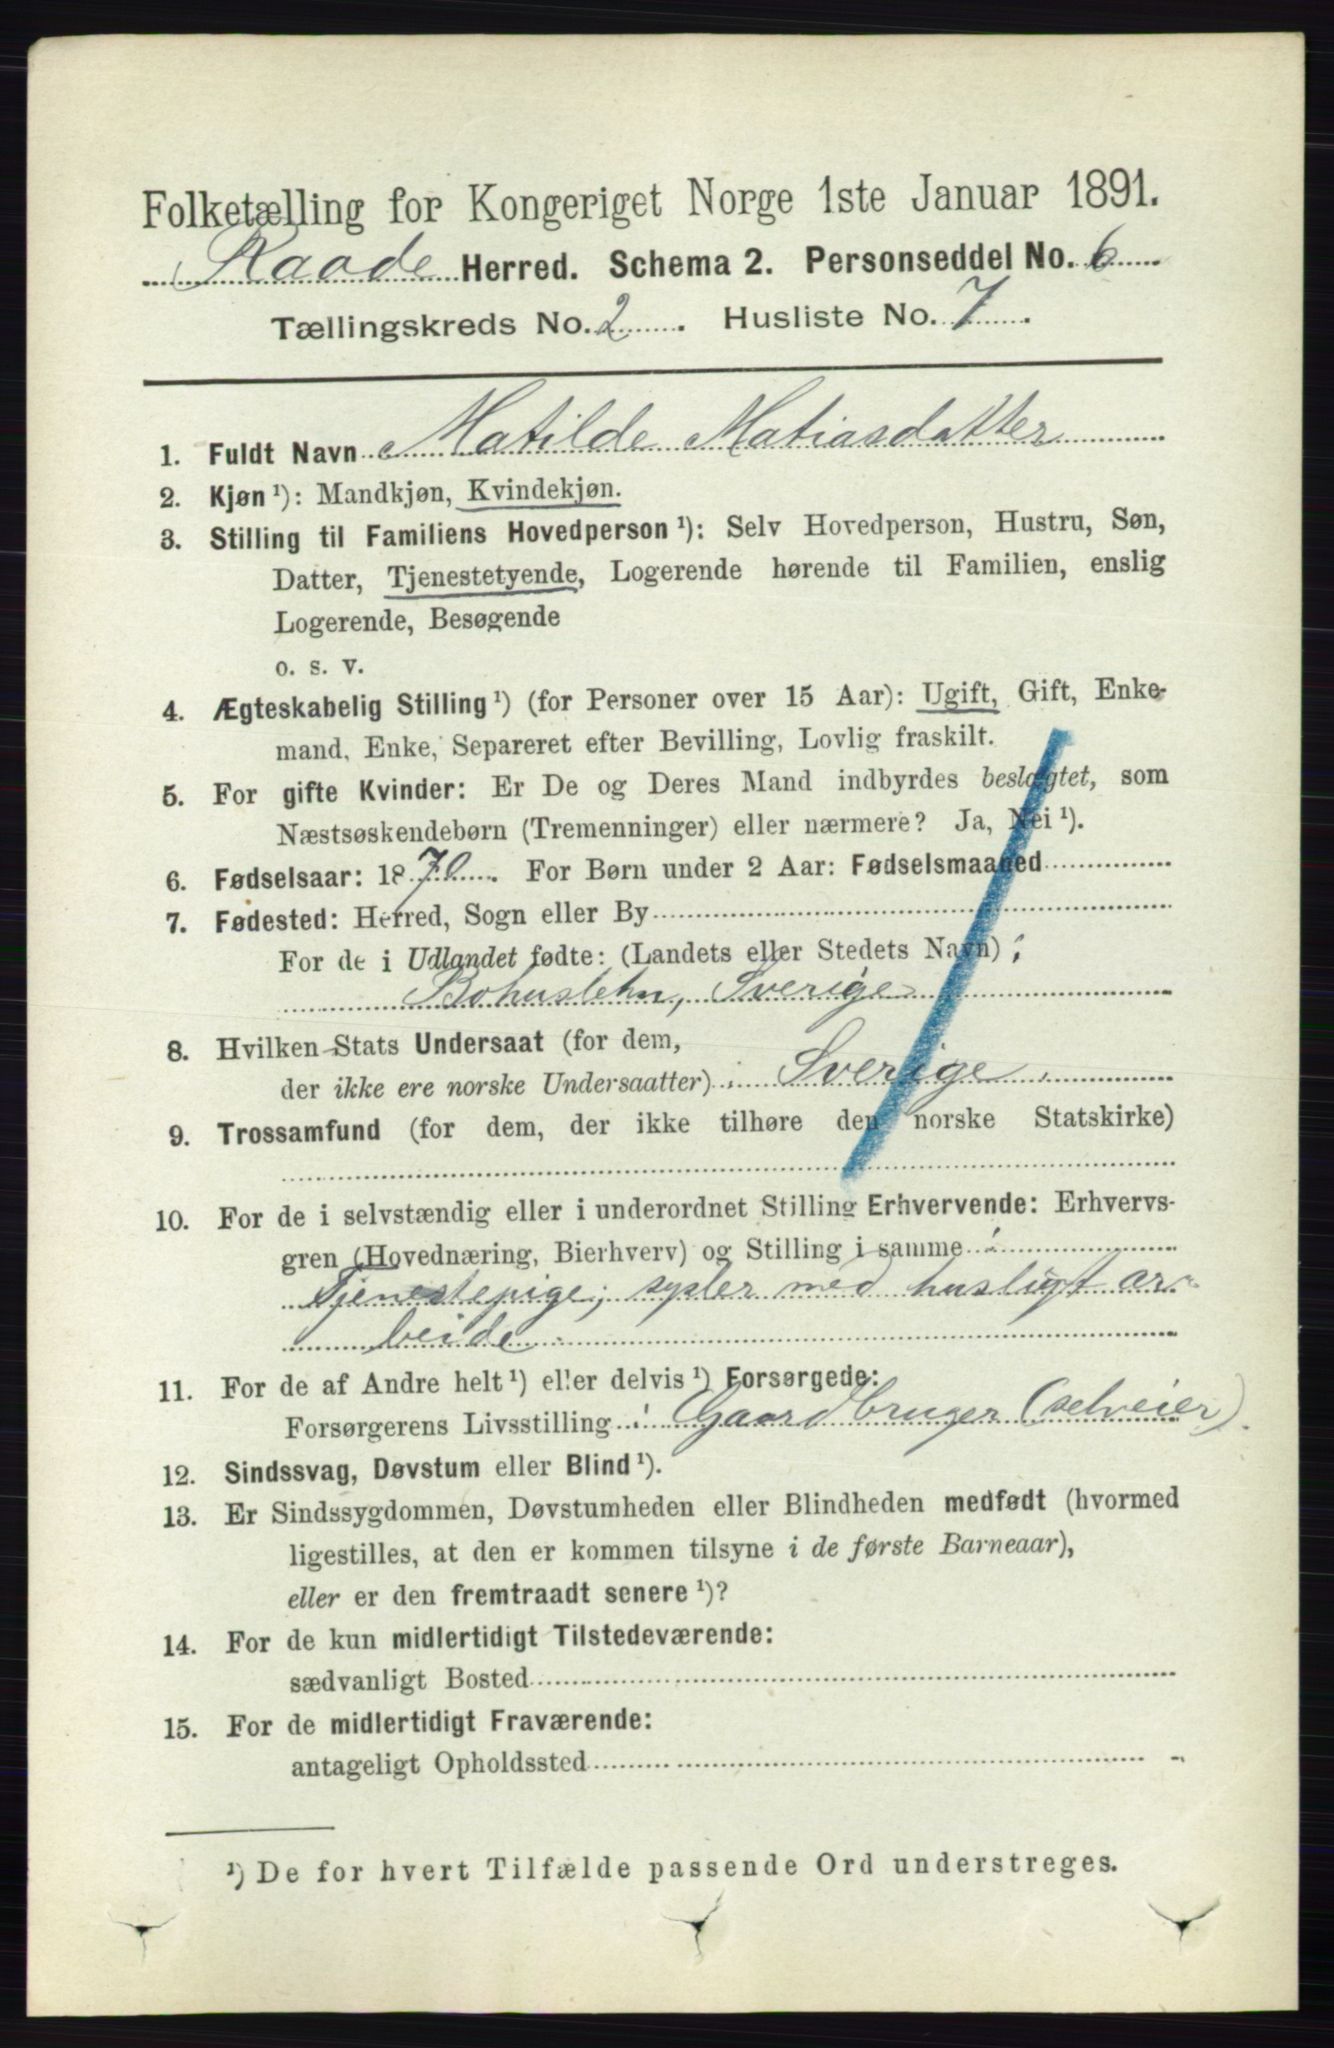 Folketælling for Kongeriget Norge 1ste Januar 1891.
Raade Herred. Schema 2. Personseddel No. 6
Tællingskreds No. 2. Husliste No. 7.
1. Fuldt Navn Matilde Matiasdatter
2. Kjøn ¹): Mandkjøn, Kvindekjøn.
3. Stilling til Familiens Hovedperson ¹): Selv Hovedperson, Hustru, Søn,
Datter, Tjenestetyende, Logerende hørende til Familien, enslig
Logerende, Besøgende
o. s. v.
4. Ægteskabelig Stilling ¹) (for Personer over 15 Aar): Ugift, Gift, Enke-
mand, Enke, Separeret efter Bevilling, Lovlig fraskilt.
5. For gifte Kvinder: Er De og Deres Mand indbyrdes beslægtet, som
Næstsøskendebørn (Tremenninger) eller nærmere? Ja, Nei ¹).
6. Fødselsaar: 1870. For Børn under 2 Aar: Fødselsmaaned
7. Fødested: Herred, Sogn eller By
For de i Udlandet fødte: (Landets eller Stedets Navn):
Bohuslehn, Sverige
8. Hvilken Stats Undersaat (for dem,
der ikke ere norske Undersaatter): Sverige.
9. Trossamfund (for dem, der ikke tilhøre den norske Statskirke)
10. For de i selvstændig eller i underordnet Stilling Erhvervende: Erhvervs-
gren (Hovednæring, Bierhverv) og Stilling i samme:
Tjenestepige, sysler med husligt ar-
beide
11. For de af Andre helt ¹) eller delvis ¹) Forsørgede:
Forsørgerens Livsstilling: Gaardbruger (selveier).
12. Sindssvag, Døvstum eller Blind ¹).
13. Er Sindssygdommen, Døvstumheden eller Blindheden medfødt (hvormed
ligestilles, at den er kommen tilsyne i de første Barneaar),
eller er den fremtraadt senere ¹)?
14. For de kun midlertidigt Tilstedeværende:
sædvanligt Bosted
15. For de midlertidigt Fraværende:
antageligt Opholdssted
¹) De for hvert Tilfælde passende Ord understreges.